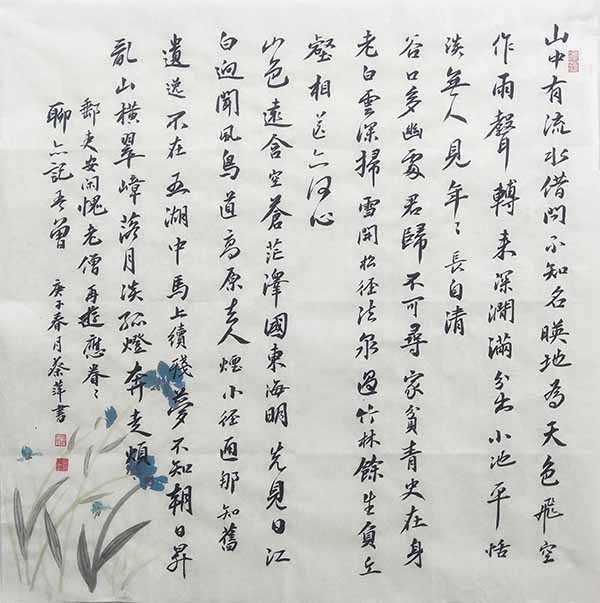 山中有流水借問不知名暎地為天色飛空
作雨聲轉来深澗滿分出小池平恬
淡無人見年〻長自清
谷口多幽處君歸不可尋家貧青史在身
老白雲深掃雪開松徑泉過竹林餘生負丘
壑相送亦何心
山色遠含空蒼茫澤國東海明先見日江
白迥聞風鳥道高原去人煙小徑通那知舊
遺逸不在五湖中馬上續殘夢不知朝日昇
亂山橫翠嶂落月淡孤燈奔走煩
郵吏安閑愧老僧再遊應眷〻
聊亦記吾曾 庚子春月蔡萍書